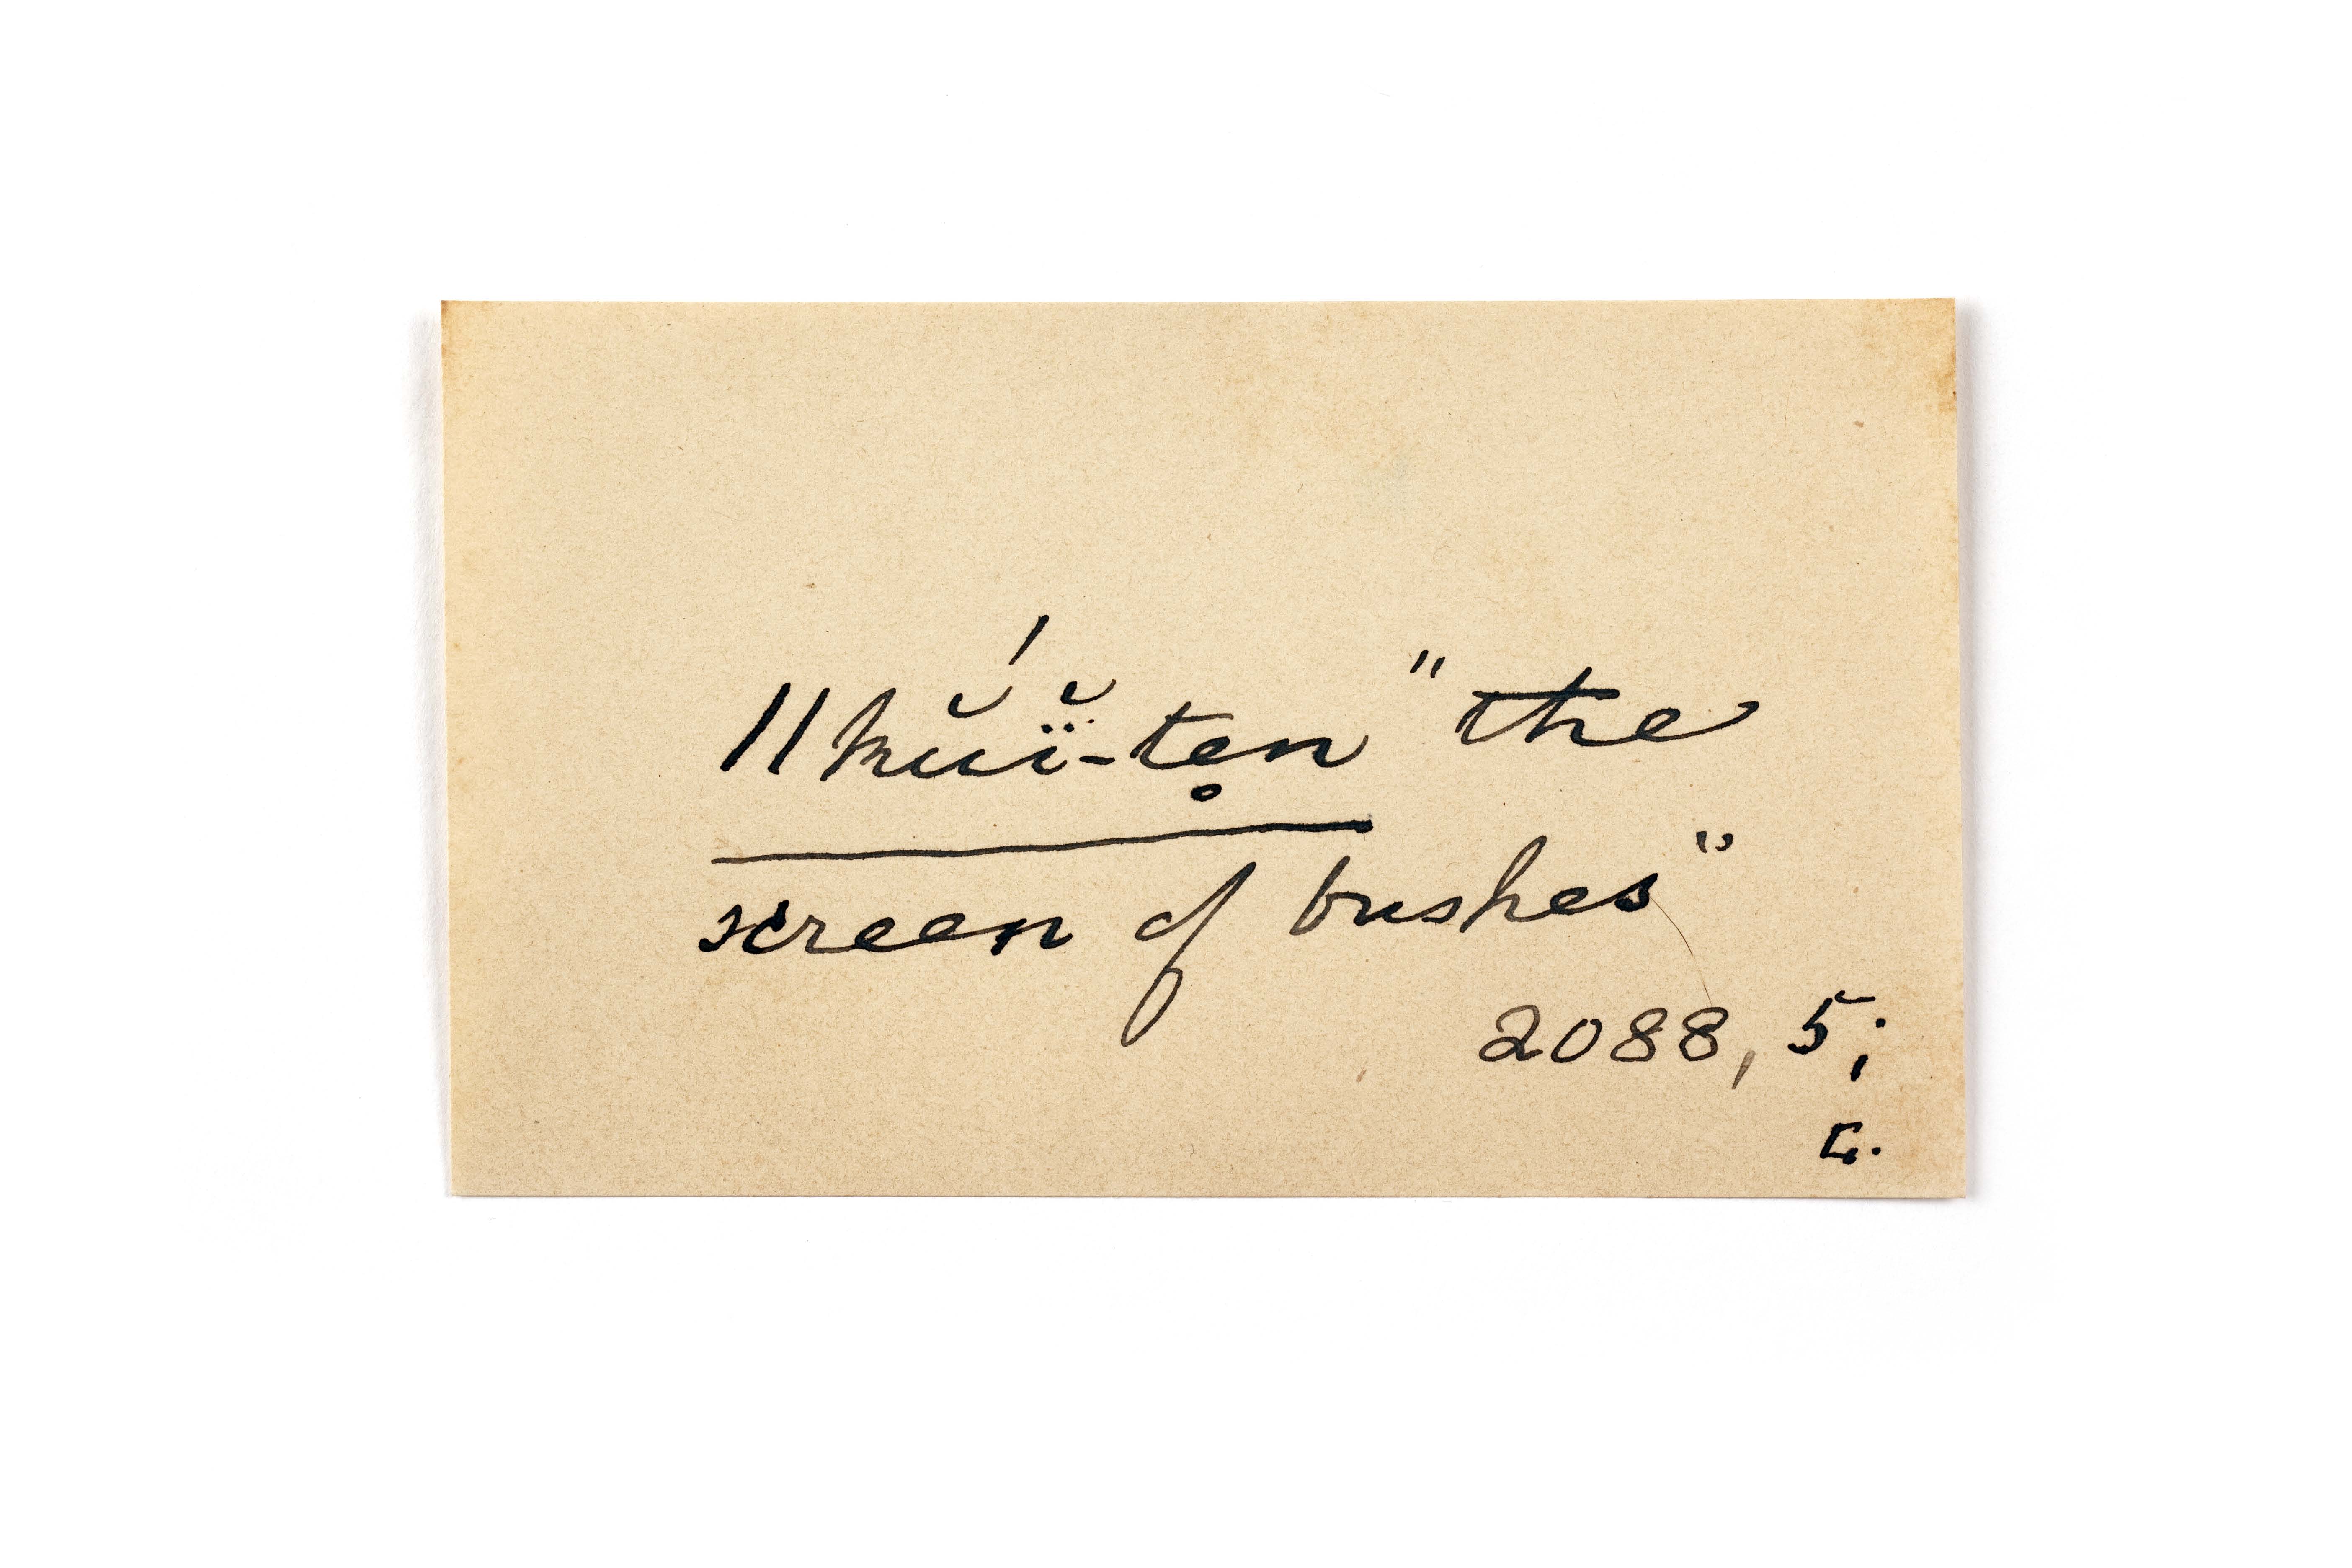 ǁkŭ́ĭ̈-te̥n "the
screen of bushes"
2088, 5;